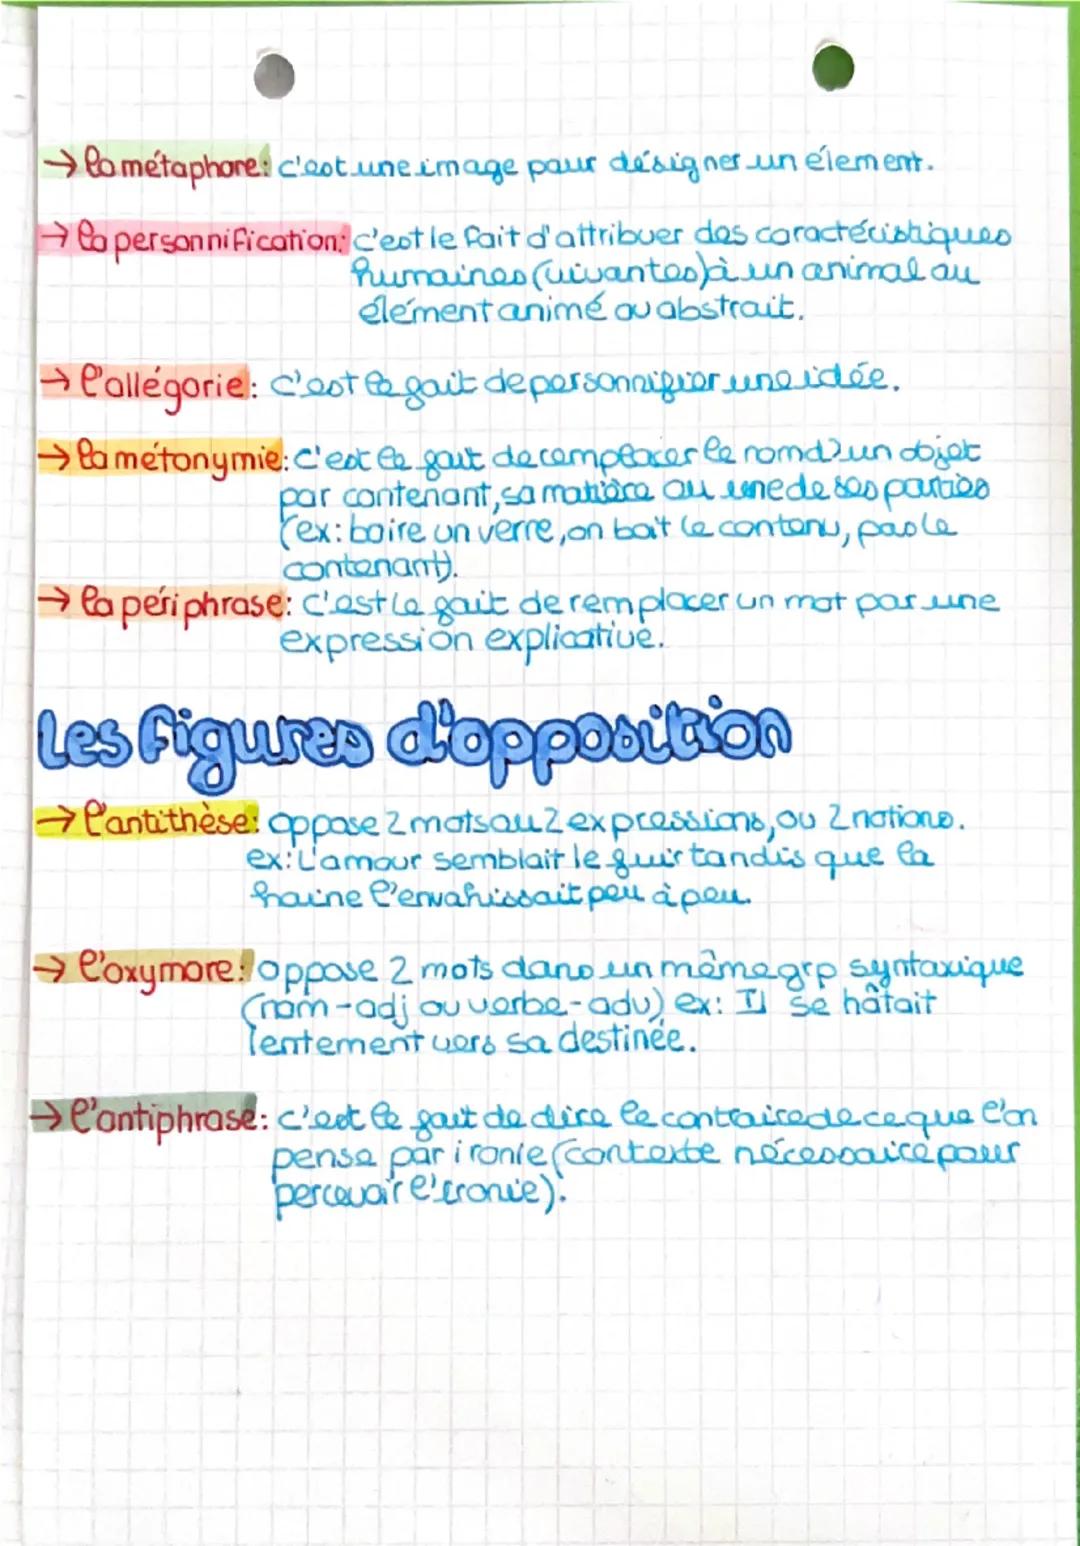 → la métaphore: c'est une image pour désigner un élement.
→ la personnification: c'est le fait d'attribuer des caractéristiques
humaines (vivantes) à un animal ou
élément animé ou abstrait.
→ l'allégorie: c'est le fait de personnifier une idée.
→ la métonymie: c'est le fait de remplacer le nom d'un objet
par contenant, sa matière ou une de ses parties
(ex: boire un verre, on boit le contenu, pas le
contenant).
→ la périphrase: c'est le fait de remplacer un mot par une
expression explicative.
Les figures d'opposition
→ l'antithèse: oppose 2 mots ou 2 expressions, ou 2 notions.
ex: L'amour semblait le fuir tandis que la
haine l'envahissait peu à peu.
→ l'oxymore: oppose 2 mots dans un même grp syntaxique
(nom-adj ou verbe-adv) ex: Il se hâtait
lentement vers sa destinée.
→ l'antiphrase: c'est le fait de dire le contraire de ce que l'on
pense par ironie (contexte nécessaire pour
percevoir l'ironie).